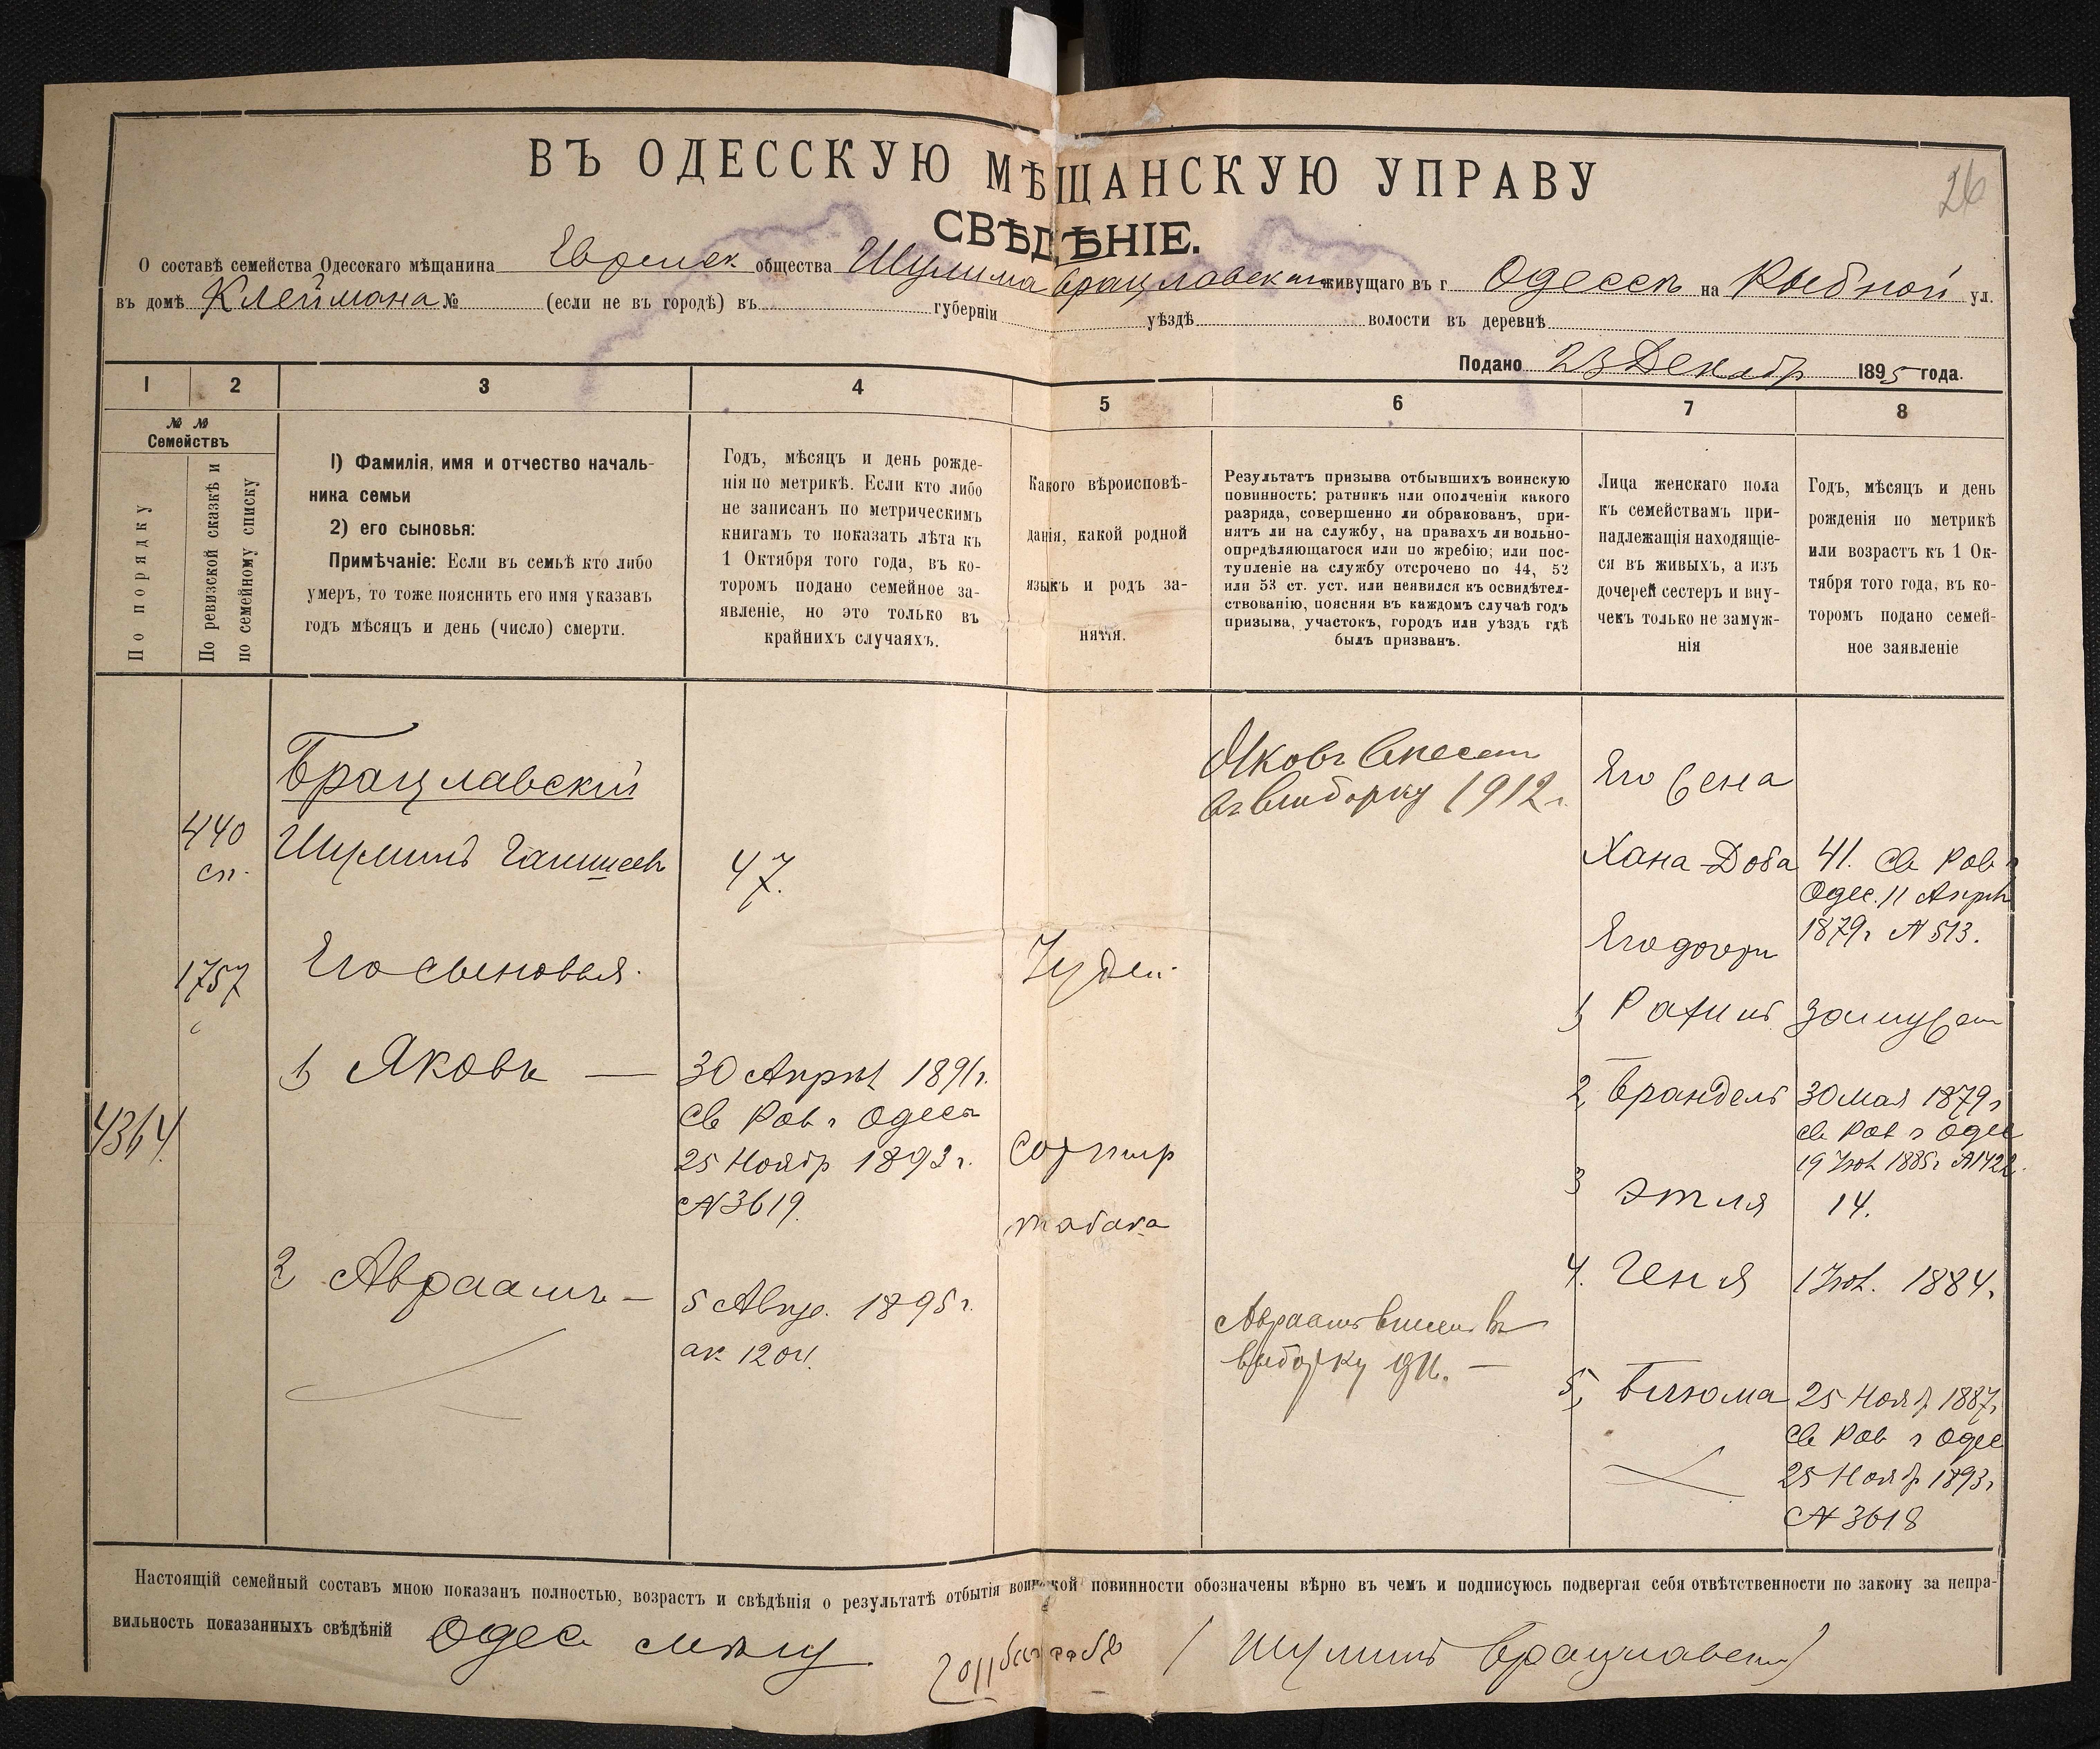 26
ВЪ ОДЕССКУЮ МѢЩАНСКУЮ УПРАВУ
СВѢДѢНІЕ.
О составѣ семейства Одесскаго мѣщанина Еврейск общества Шулима Брацлавскаго живущаго въ г Одессѣ на Рыбной ул.
въ домѣ Клеймана № (если не въ городѣ) въ губерніи уѣздѣ волости въ деревнѣ
Подано 23 Декабр 1895 года.
1 2 3 4 5 6 7 8
№ №
Семействъ
По порядку
По ревизской сказкѣ и
по семейному списку
1) Фамилія, имя и отчество началь-
ника семьи
2) его сыновья:
Примѣчаніе: Если въ семьѣ кто либо
умеръ, то тоже пояснить его имя указавъ
годъ мѣсяцъ и день (число) смерти.
Годъ, мѣсяцъ и день рожде-
нія по метрикѣ. Если кто либо
не записанъ по метрическимъ
книгамъ то показать лѣта къ
1 Октября того года, въ ко-
торомъ подано семейное за-
явленіе, но это только въ
крайнихъ случаяхъ.
Какого вѣроисповѣ-
данія, какой родной
языкъ и родъ за-
нятія.
Результатъ призыва отбывшихъ воинскую
повинность: ратникъ или ополченія какого
разряда, совершенно ли обракованъ, при-
нятъ ли на службу, на правахъ ли вольно-
опредѣляющагося или по жребію; или пос-
тупленіе на службу отсрочено по 44, 52
или 53 ст. уст. или неявился къ освидѣтел-
ствованію, поясняя въ каждомъ случаѣ годъ
призыва, участокъ, городъ или уѣздъ гдѣ
былъ призванъ.
Лица женскаго пола
къ семействамъ при-
надлежащія находящіе-
ся въ живыхъ, а изъ
дочерей сестеръ и вну-
чекъ только не замуж-
нія
Годъ, мѣсяцъ и день
рожденія по метрикѣ
или возрастъ къ 1 Ок-
тября того года, въ ко-
торомъ подано семей-
ное заявленіе
4364
440
сп.
1757
Брацлавскій
Шулимъ
47.
Его сыновья.
1, Яковъ —
30 Апрѣл 1891 г.
Св Рав г Одесы
25 Ноябр 1893 г.
№ 3619.
2 Авраамъ —
5 Авгус. 1895 г.
ак 1204.
Іудей
сортир
табака
Яковъ внесенъ
въ выборку 1912 г.
Авраамъ внесен въ
выборку
Его жена
Хана-Доба
41. Св Рав г
Одес. 11 Апрѣл
1879 г № 513.
Его дочери
1, Рахиль замужем
2, Брандель
30 мая 1879 г
Св Рав г Одес
19 Іюл 1885 г № 1422.
3 Этля
14.
4. Геня
1 Іюл. 1884.
5, Блюма
25 Нояб 1887 г
Св Рав г Одес
25 Нояб 1893 г
№ 3618
Настоящій семейный составъ мною показанъ полностью, возрастъ и свѣдѣнія о результатѣ отбытія воинской повинности обозначены вѣрно въ чемъ и подписуюсь подвергая себя отвѣтственности по закону за непра-
вильность показанныхъ свѣдѣній Одес мѣщ / Шулимъ Брацлавскій /